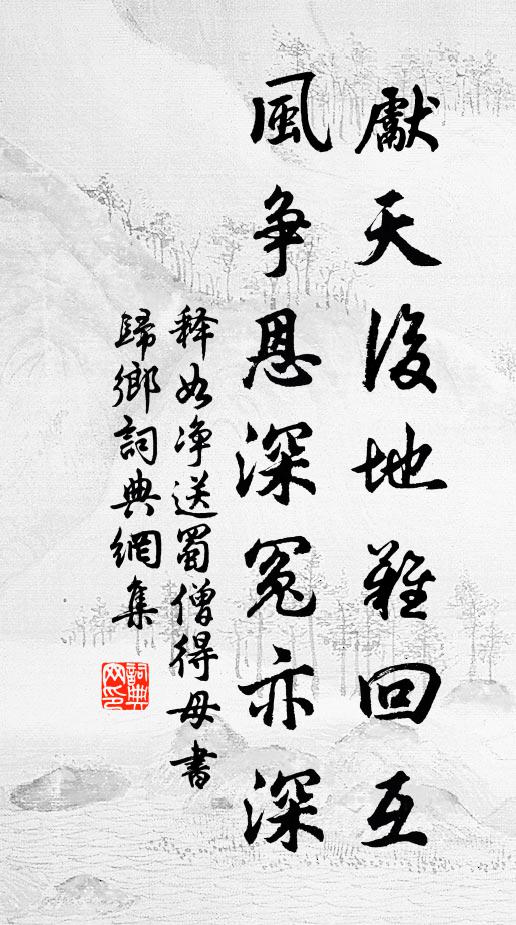 獻天後地難回互
風争恩深冤亦深
释如净送蜀僧得母書
歸鄉詞典網集
詞典
网印